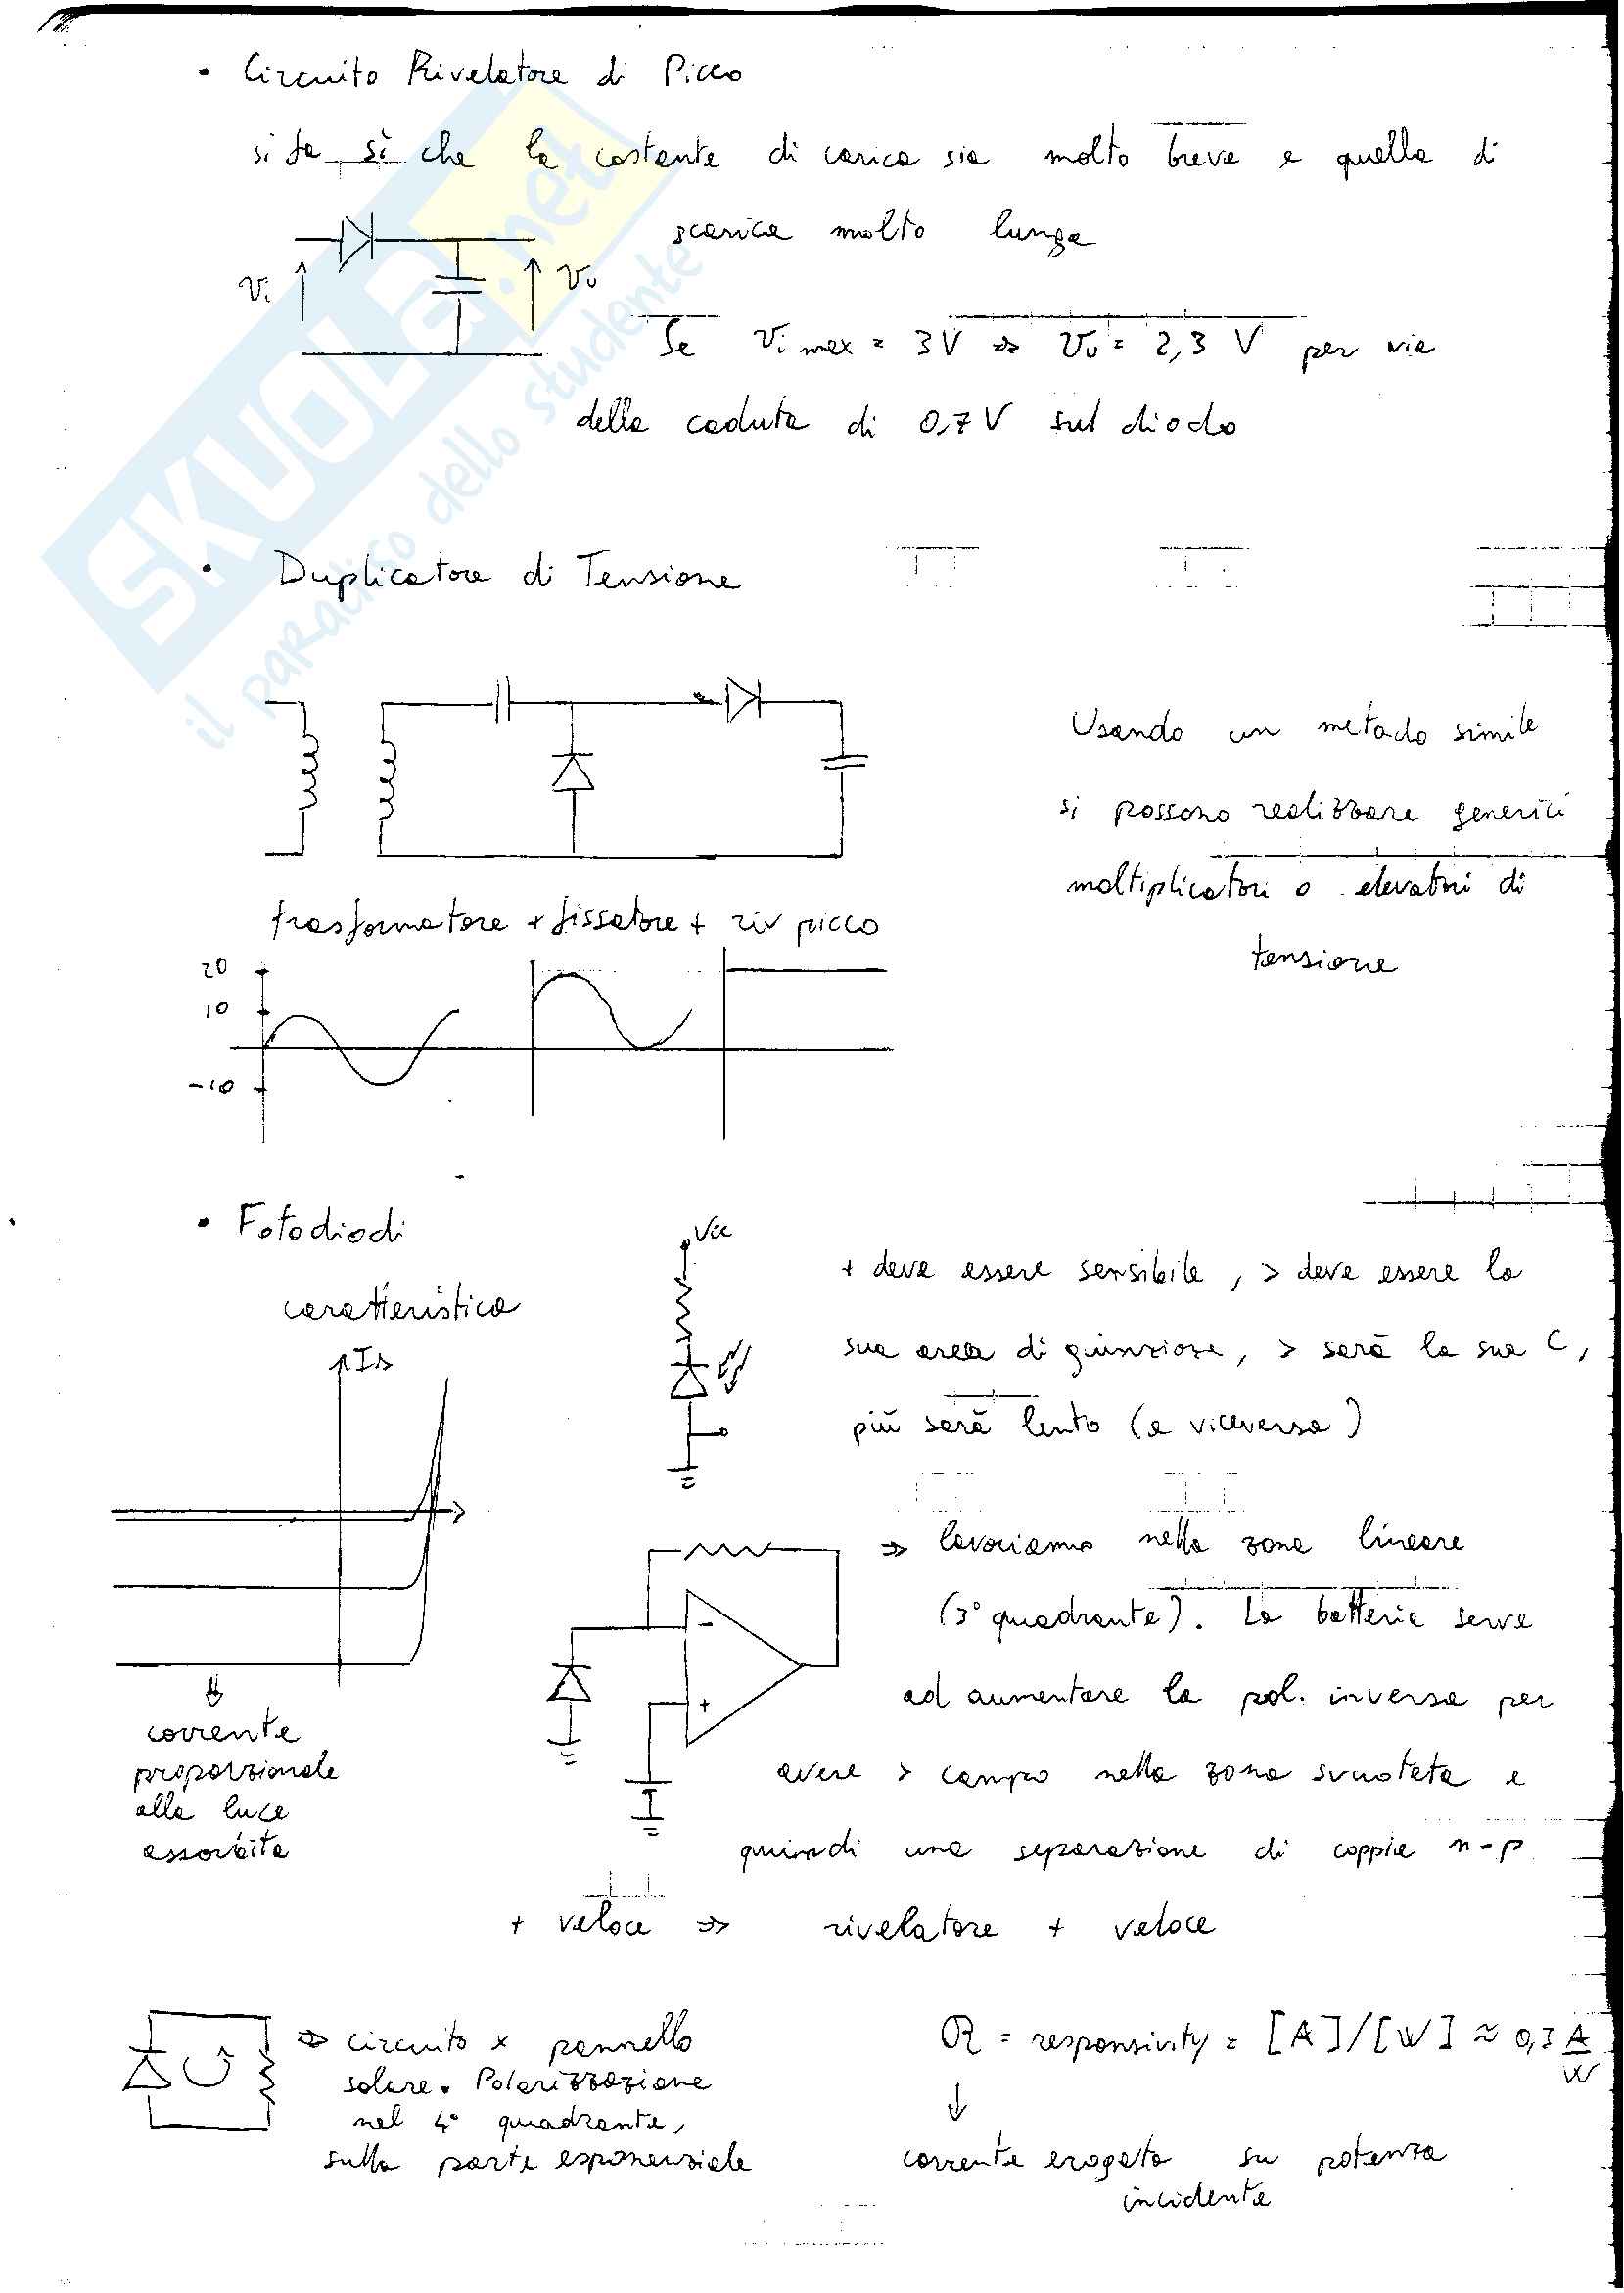 • Circuito Rivelatore di Picco
si fa sì che la costante di carica sia molto breve e quella di
scarica molto lunga
Vi
Vu
Se Vi max = 3V => Vu = 2,3 V per via
della caduta di 0,7 V sul diodo
• Duplicatore di Tensione
Usando un metodo simile
si possono realizzare generici
moltiplicatori o elevatori di
tensione
trasformatore + fissatore + riv picco
20
10
-10
• Fotodiodi
caratteristica
ID
Vcc
+ deve essere sensibile, > deve essere la
sua area di giunzione, > sarà la sua C,
più sarà lento (e viceversa)
- +
=> lavoriamo nella zona lineare
(3° quadrante). La batteria serve
ad aumentare la pol. inversa per
avere > campo nella zona svuotata e
quindi una separazione di coppie n-p
+ veloce => rivelatore + veloce
corrente
proporzionale
alla luce
assorbita
=> circuito x pannello
solare. Polarizzazione
nel 4° quadrante,
sulla parte esponenziale
R = responsivity = [A]/[W] ≈ 0,3 A/W
↓
corrente erogata su potenza
incidente
SKUOLA.net
il paradiso dello studente